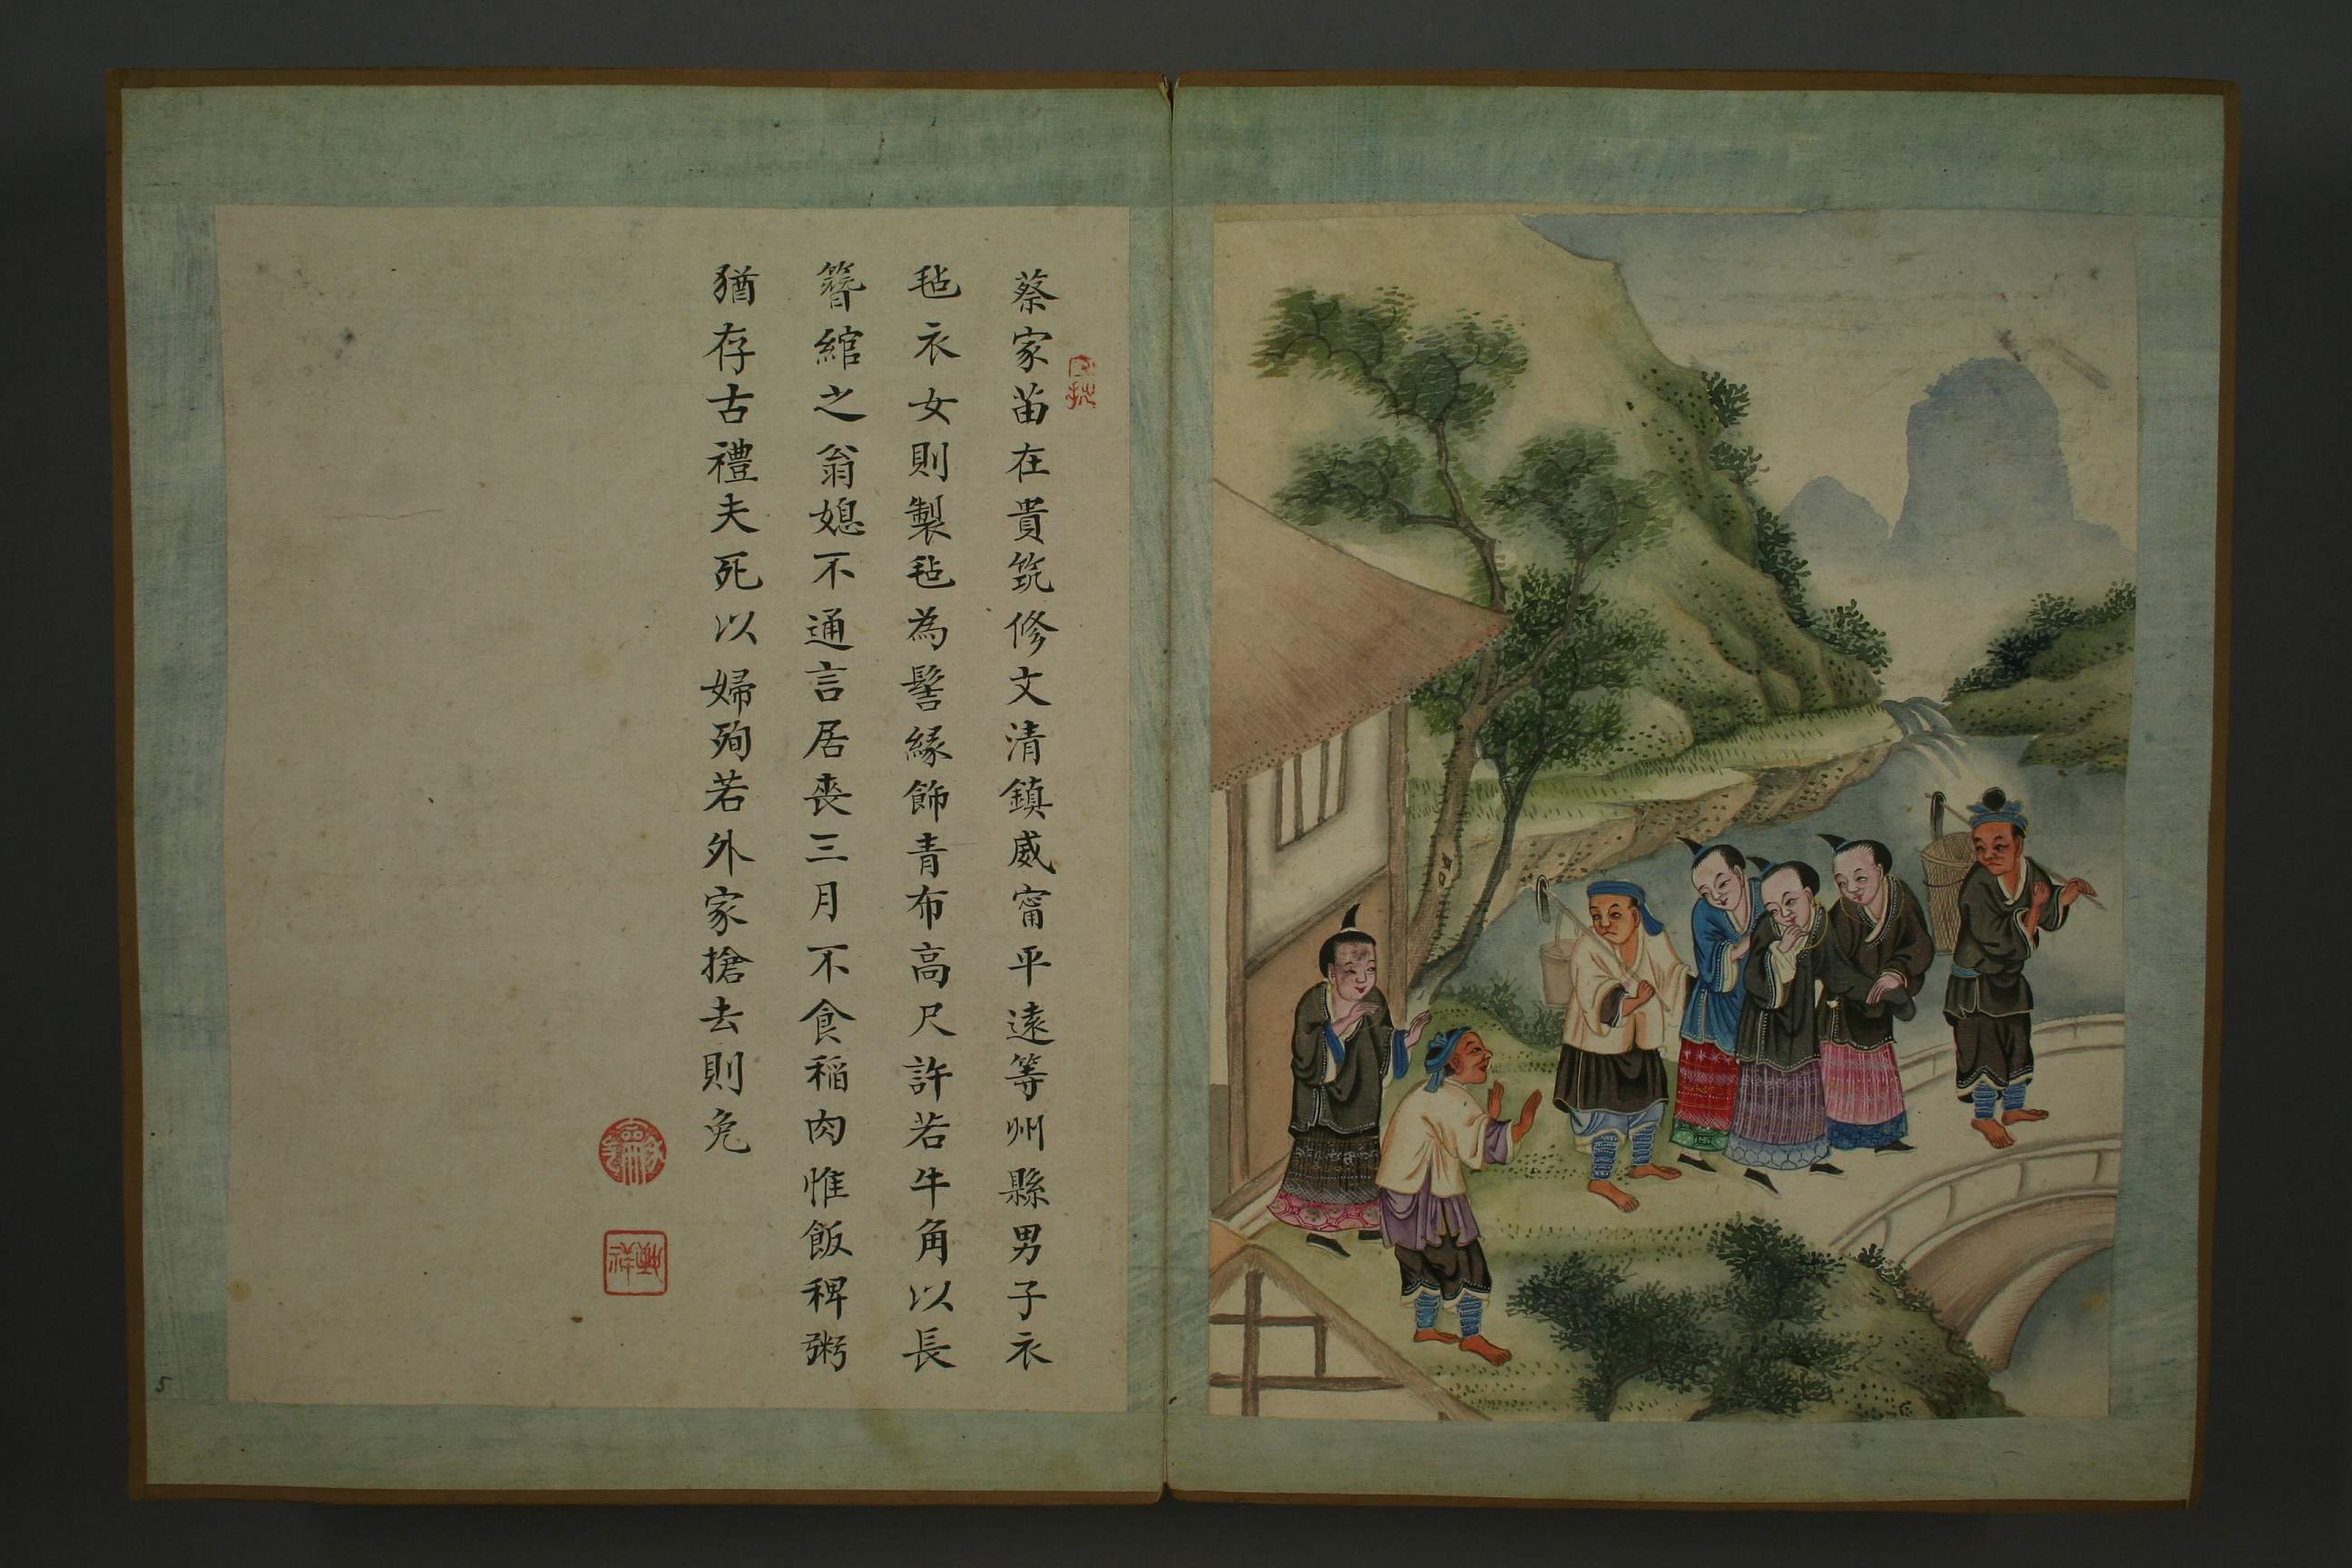 蔡家苗在貴筑修文清鎮威甯平遠等州縣男子衣
毡衣女則製毡為髻緣飾青布高尺許若牛角以長
簪綰之翁媳不通言居喪三月不食稻肉惟飯稗粥
猶存古禮夫死以婦殉若外家搶去則免
5